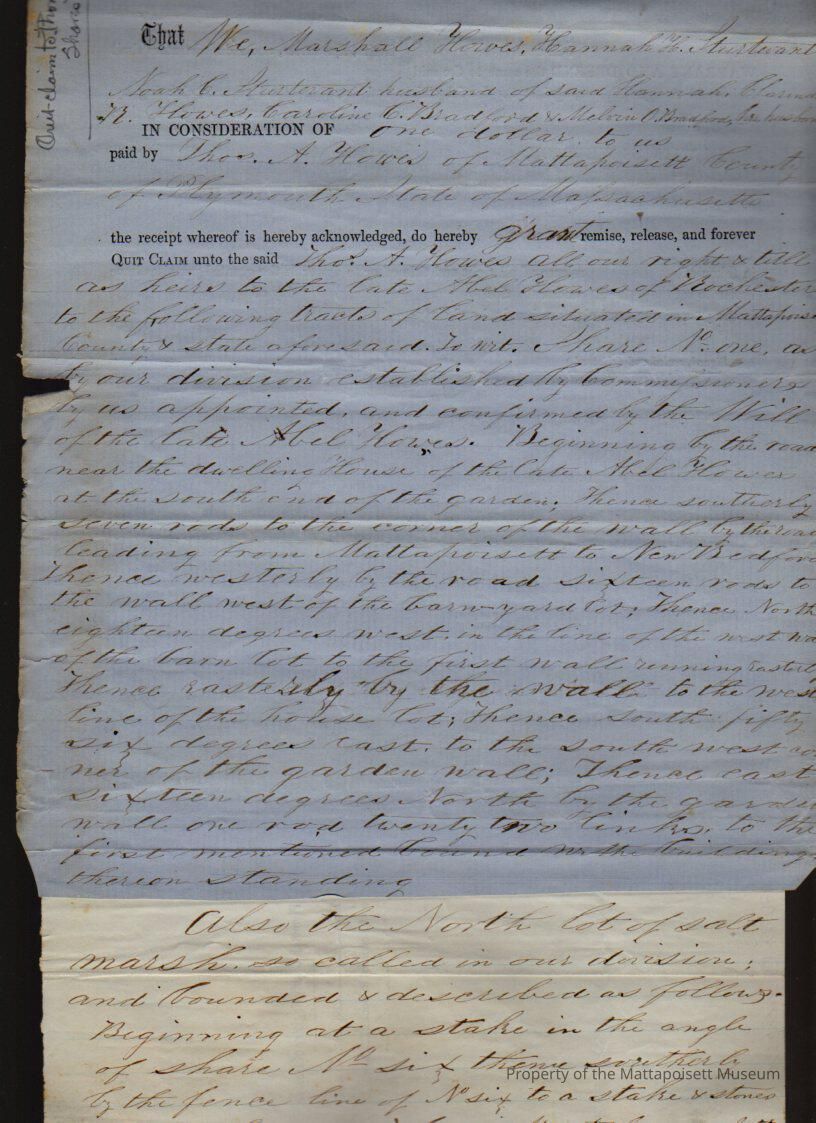 Quit claim to Thos
Share
That We, Marshall Howes, Hannah H. Sturtevant
Noah C. Sturtevant husband of said Hannah,
R. Howes, Caroline C. Bradford & Melvin O. Bradford, her husband
IN CONSIDERATION OF one dollar to us
paid by Thos. A. Howes of Mattapoisett County
of Plymouth State of Massachusetts
the receipt whereof is hereby acknowledged, do hereby grant remise, release, and forever
QUIT CLAIM unto the said Thos. A. Howes all our right & title
as heirs to the late Abel Howes of Rochester
to the following tracts of land situated in Mattapois
County & state aforesaid. To wit. Share No. one, as
by our division established by Commissioners
by us appointed, and confirmed by the Will
of the late Abel Howes. Beginning by the road
near the dwelling House of the late Abel Howes
at the south end of the garden; Thence southerly
seven rods to the corner of the wall by the road
leading from Mattapoisett to New Bedford
Thence westerly by the road sixteen rods to
the wall west of the barn-yard lot; Thence North
eighteen degrees west in the line of the west wa
of the barn lot to the first wall running easterly
Thence easterly by the wall to the west
line of the house lot; Thence south fifty
six degrees east to the south west co
ner of the garden wall; Thence east
sixteen degrees North by the garden
wall one rod twenty two links, to the
first mentioned bound with the buildings
thereon standing
Also the North lot of salt
marsh so called in our division;
and bounded & described as follows.
Beginning at a stake in the angle
of share No six thence southerly
by the fence line of No six to a stake & stones
Property of the Mattapoisett Museum